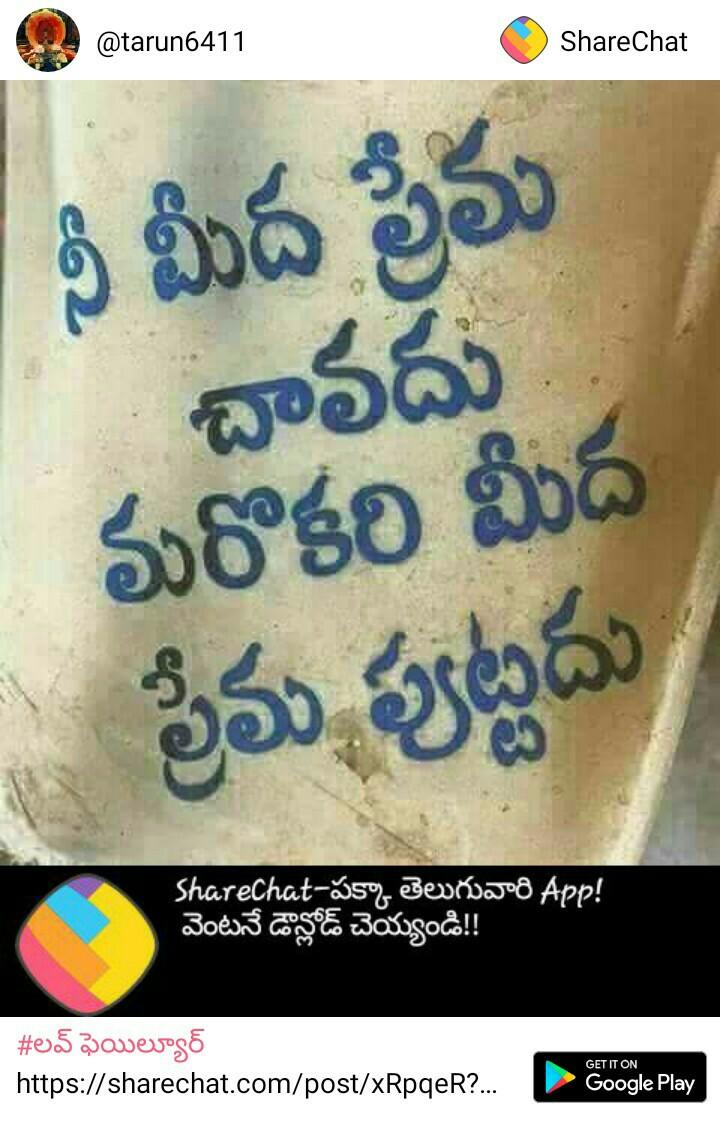 @tarun6411
ShareChat
నీ మీద ప్రేమ
చావదు
మరొకరి మీద
ప్రేమ పుట్టదు
ShareChat-పక్కా తెలుగువారి App!
వెంటనే డౌన్లోడ్ చెయ్యండి!!
#లవ్ ఫెయిల్యూర్
https://sharechat.com/post/xRpqeR?...
GET IT ON
Google Play